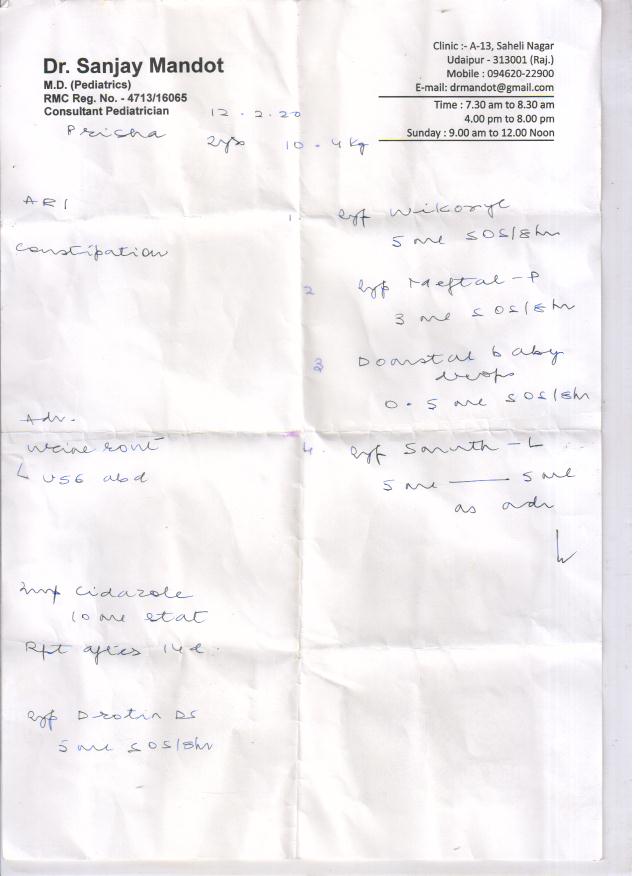 Dr. Sanjay Mandot
M.D. (Pediatrics)
RMC Reg. No. - 4713/16065
Consultant Pediatrician
Clinic :- A-13, Saheli Nagar
Udaipur - 313001 (Raj.)
Mobile : 094620-22900
E-mail: drmandot@gmail.com
Time : 7.30 am to 8.30 am
4.00 pm to 8.00 pm
Sunday : 9.00 am to 12.00 Noon
12.2.20
Prisha 10.4 kg
ARI
Constipation
Adv.
Urine rout
USG abd
Cidazole
10 ml stat
Rpt after 14d.
Syp Drotin DS
5 ml SOS/8hr
1. Syp Wikoryl
5 ml SOS/8hr
2 Syp Meftal-P
3 ml SOS/8hr
3 Domstal baby
drops
0.5 ml SOS/8hr
4. Syp Smuth-L
5 ml — 5 ml
as adv